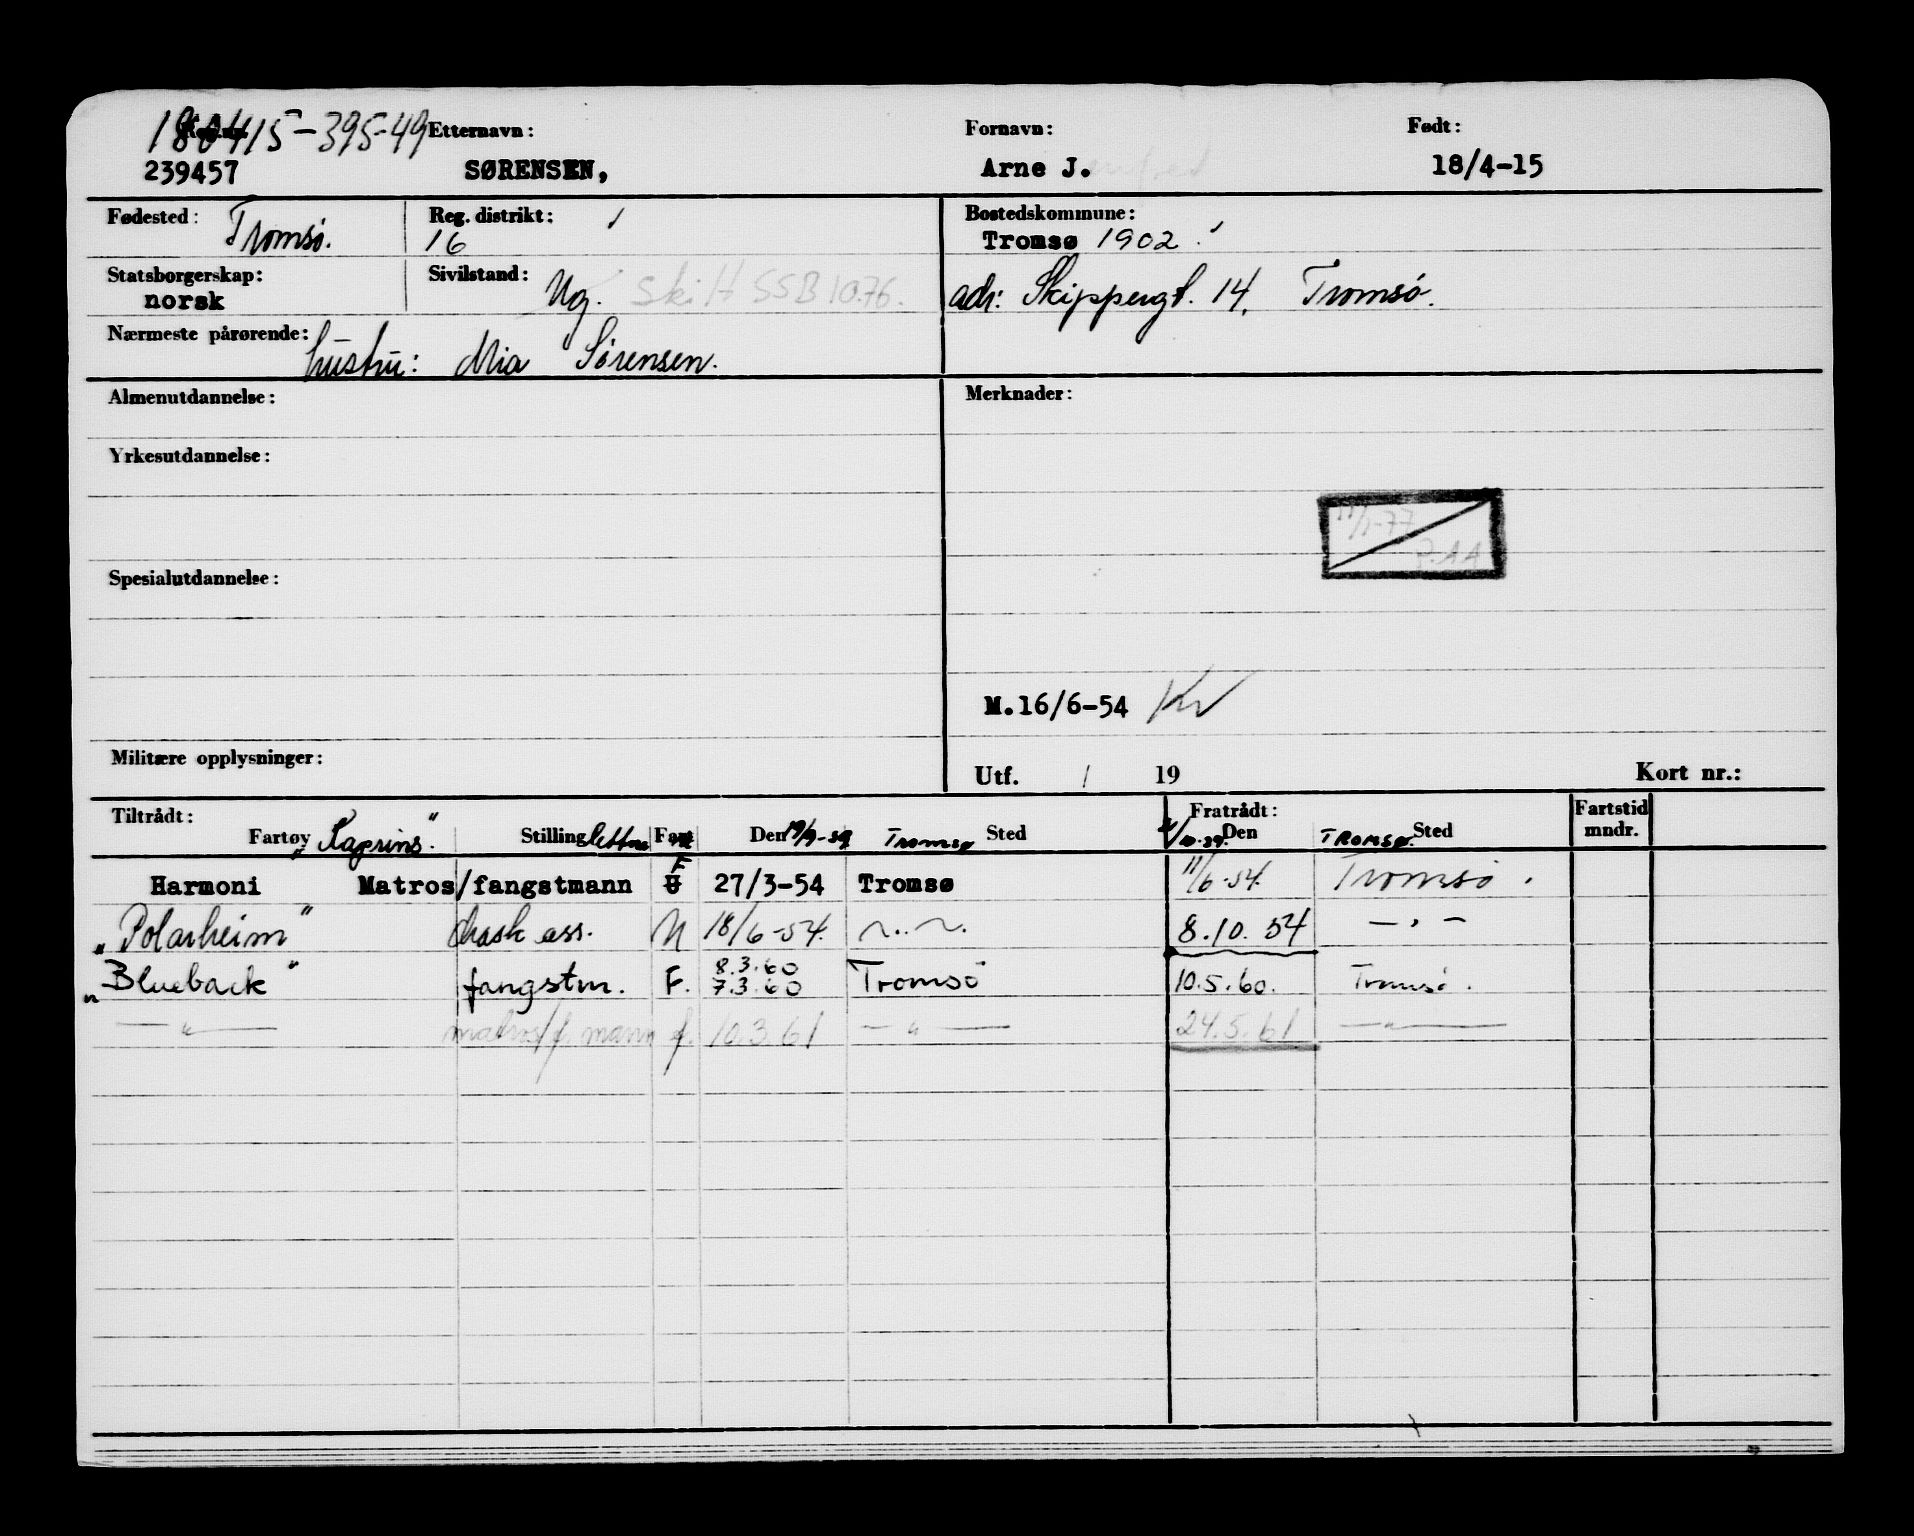 180415-395-49 Etternavn: Fornavn: Født:
239457 SØRENSEN, Arne J. 18/4-15
Fødested: Tromsø. Reg. distrikt: 16 Bostedskommune: Tromsø 1902
Statsborgerskap: norsk Sivilstand: Ug. Skilt SSB 10.76. adr: Skippergt. 14, Tromsø.
Nærmeste pårørende: hustru: Mia Sørensen.
Almenutdannelse: Merknader:
Yrkesutdannelse:
11/1-77
Spesialutdannelse:
M.16/6-54 KV
Militære opplysninger:
Utf. / 19 Kort nr.:
Tiltrådt: Fratrådt: Fartstid mndr.
Fartøy Stilling Fart Den Sted Den Sted
"Kaprins" 19/9-59 Tromsø TROMSØ.
Harmoni Matros/fangstmann F 27/3-54 Tromsø 11/6-54. Tromsø.
"Polarheim" mask ass. N 18/6-54. 8.10.54 - " -
"Blueback" fangstm. F. 8.3.60 7.3.60 Tromsø 10.5.60. Tromsø.
— " — matros/f. mann f. 10.3.61 — " — 24.5.61 — " —